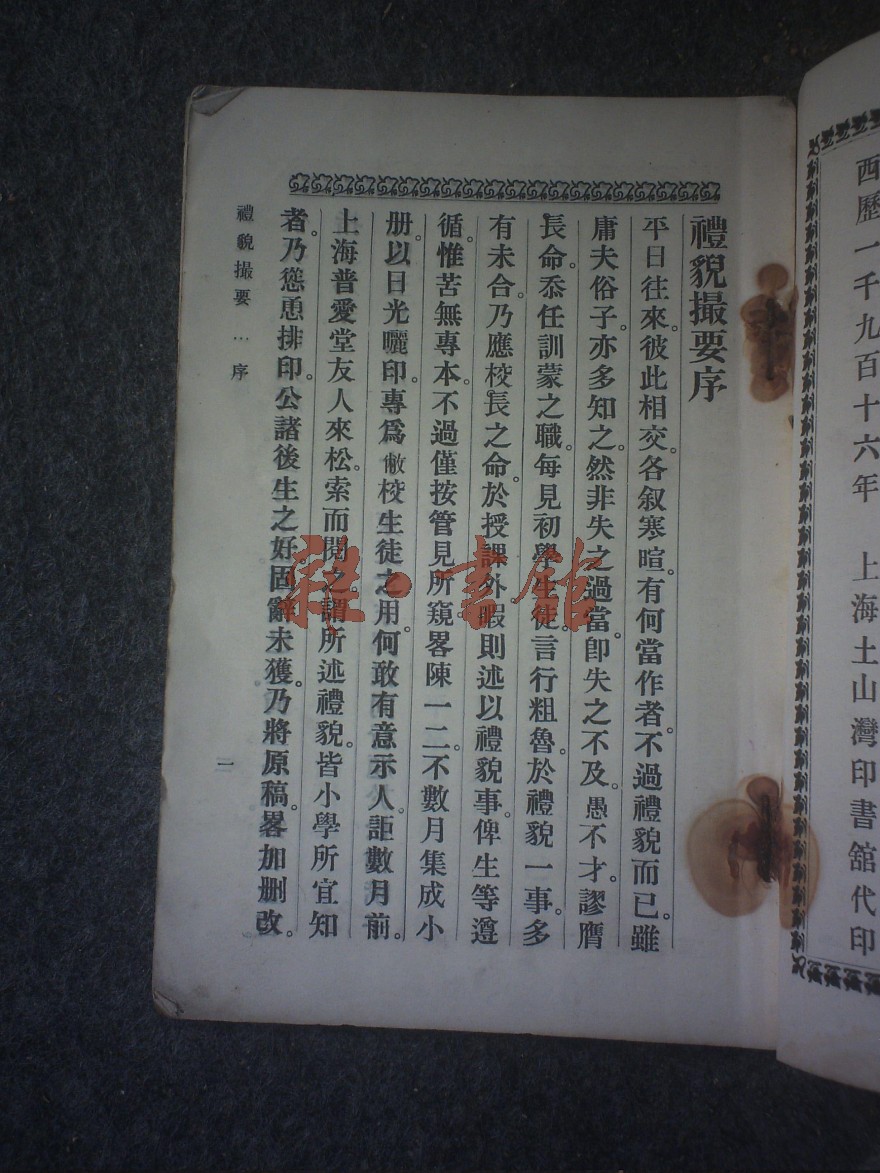 西歷一千九百十六年　上海土山灣印書舘代印
禮貌撮要序
平日往來。彼此相交。各叙寒暄。有何當作者。不過禮貌而已。雖
庸夫俗子。亦多知之。然非失之過當。卽失之不及。愚不才。謬膺
長命。忝任訓蒙之職。每見初學生徒。言行粗魯。於禮貌一事。多
有未合。乃應校長之命。於授課外暇。則述以禮貌事。俾生等遵
循。惟苦無專本。不過僅按管見所窺。畧陳一二。不數月集成小
册。以日光曬印。專爲敝校生徒之用。何敢有意示人。詎數月前。
上海普愛堂友人來松。索而閱之。謂所述禮貌。皆小學所宜知
者。乃慫恿排印。公諸後生之好。固辭未獲。乃將原稿。畧加删改。
禮貌撮要…序
一
雜·書館